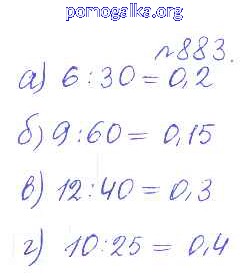 pomogalka.org
№883.
а) 6:30 = 0,2
б) 9:60 = 0,15
в) 12:40 = 0,3
г) 10:25 = 0,4